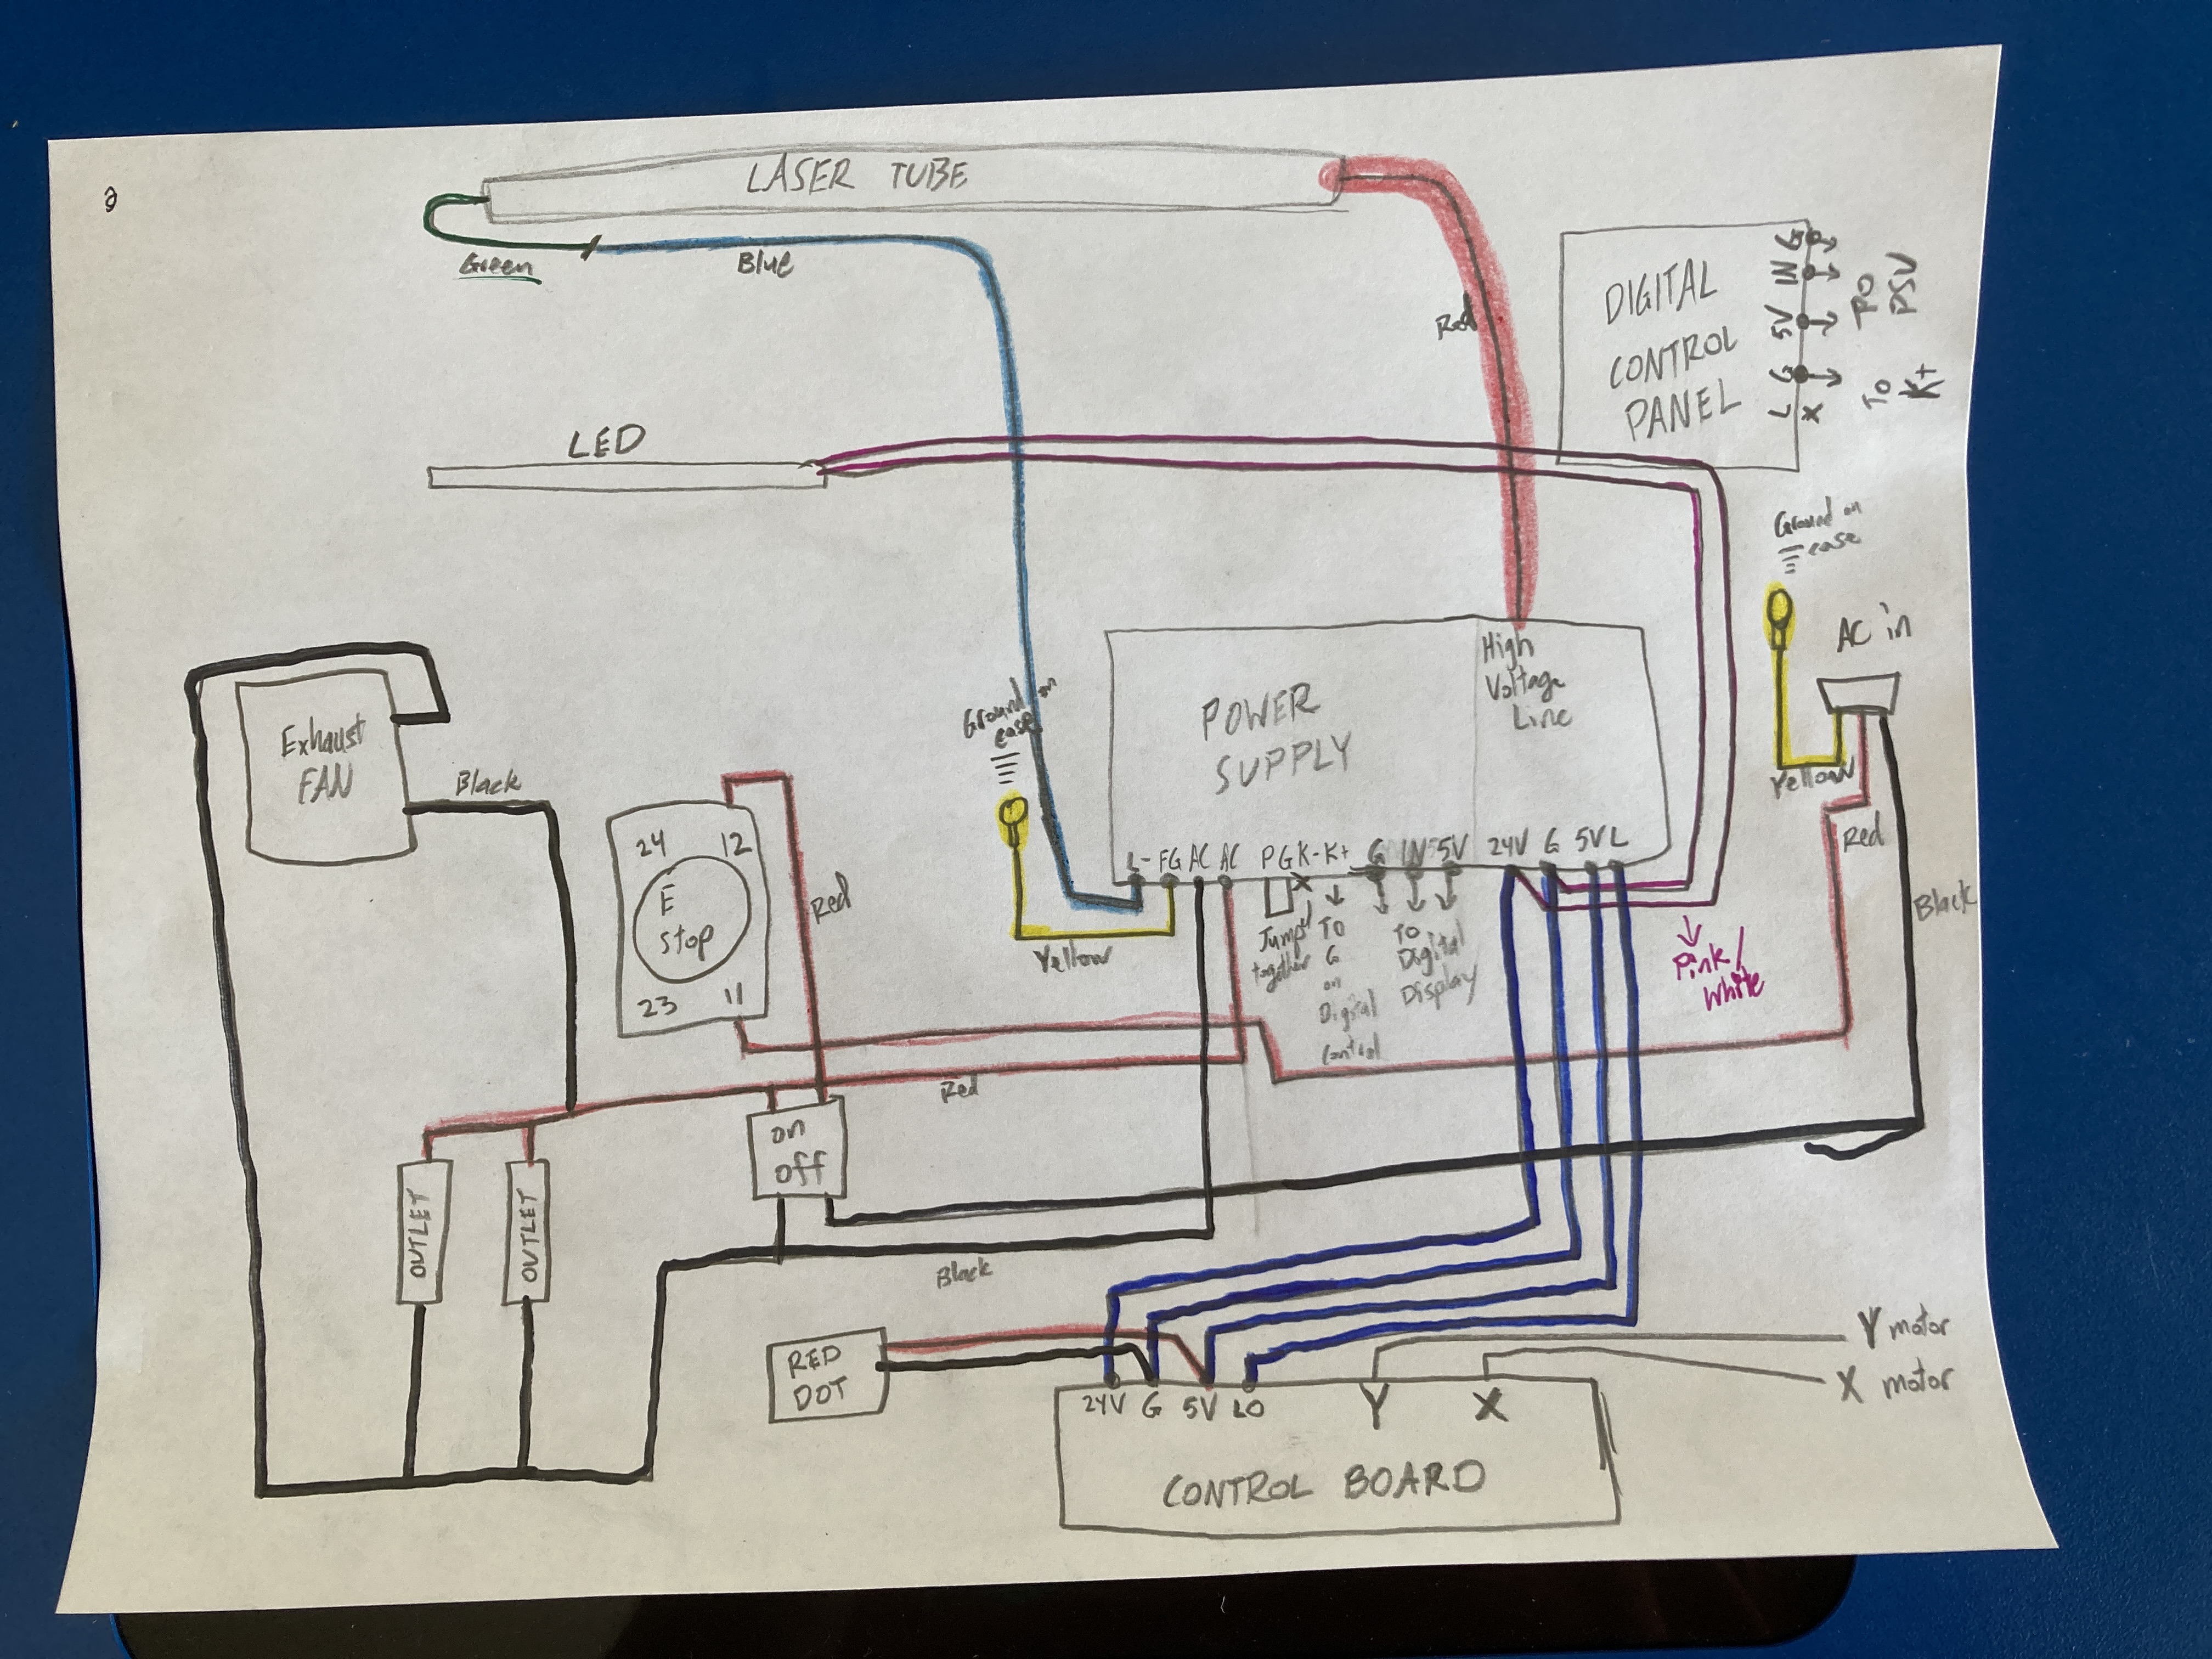 LASER TUBE
Green
Blue
Red
DIGITAL
CONTROL
PANEL
G
IN
5V
G
L
X
TO
PSU
TO
K+
LED
Ground on
case
AC in
Yellow
Red
Black
Exhaust
FAN
Black
24 12
E
Stop
23 11
Red
Ground on
case
Yellow
POWER
SUPPLY
High
Voltage
Line
L- FG AC AC P G K- K+ G IN 5V 24V G 5V L
X
Jump
together
TO
G
on
Digital
control
TO
Digital
Display
Pink/
White
Red
on
off
OUTLET
OUTLET
Black
RED
DOT
24V G 5V LO Y X
CONTROL BOARD
Y motor
X motor